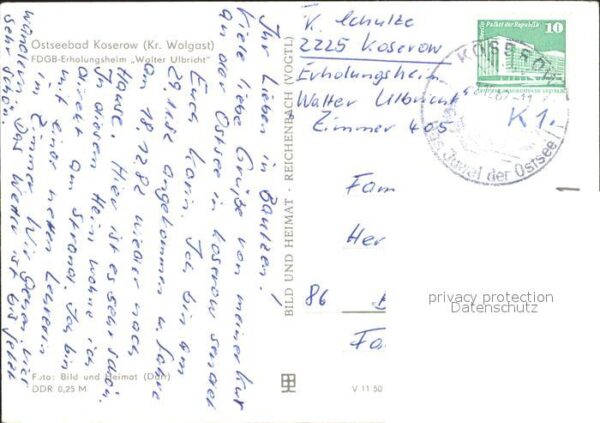 Ostseebad Koserow (Kr. Wolgast)
FDGB-Erholungsheim „Walter Ulbricht"
Ihr Lieben in Bautzen!
Viele liebe Grüße von meiner Kur
an der Ostsee in Koserow sendet
Euch Karin. Ich bin am
29.11.82 angekommen u. fahre
am 18.12.82 wieder nach
Hause. Hier ist es sehr schön.
In diesem Heim wohne ich
direkt am Strand. Ich bin
mit einer netten Lehrerin
in Zimmer. Wir gehen hier
wandern. Das Wetter ist bis jetzt
sehr schön.
Foto: Bild und Heimat (Dan)
DDR 0,25 M
BILD UND HEIMAT · REICHENBACH (VOGTL)
V 11 50
K. Schulze
2225 Koserow
Erholungsheim
Walter Ulbricht
Zimmer 405
Fam
Her
86
Fa
Palast der Republik
10
KOSEROW
K1.
Juwel der Ostsee
privacy protection
Datenschutz